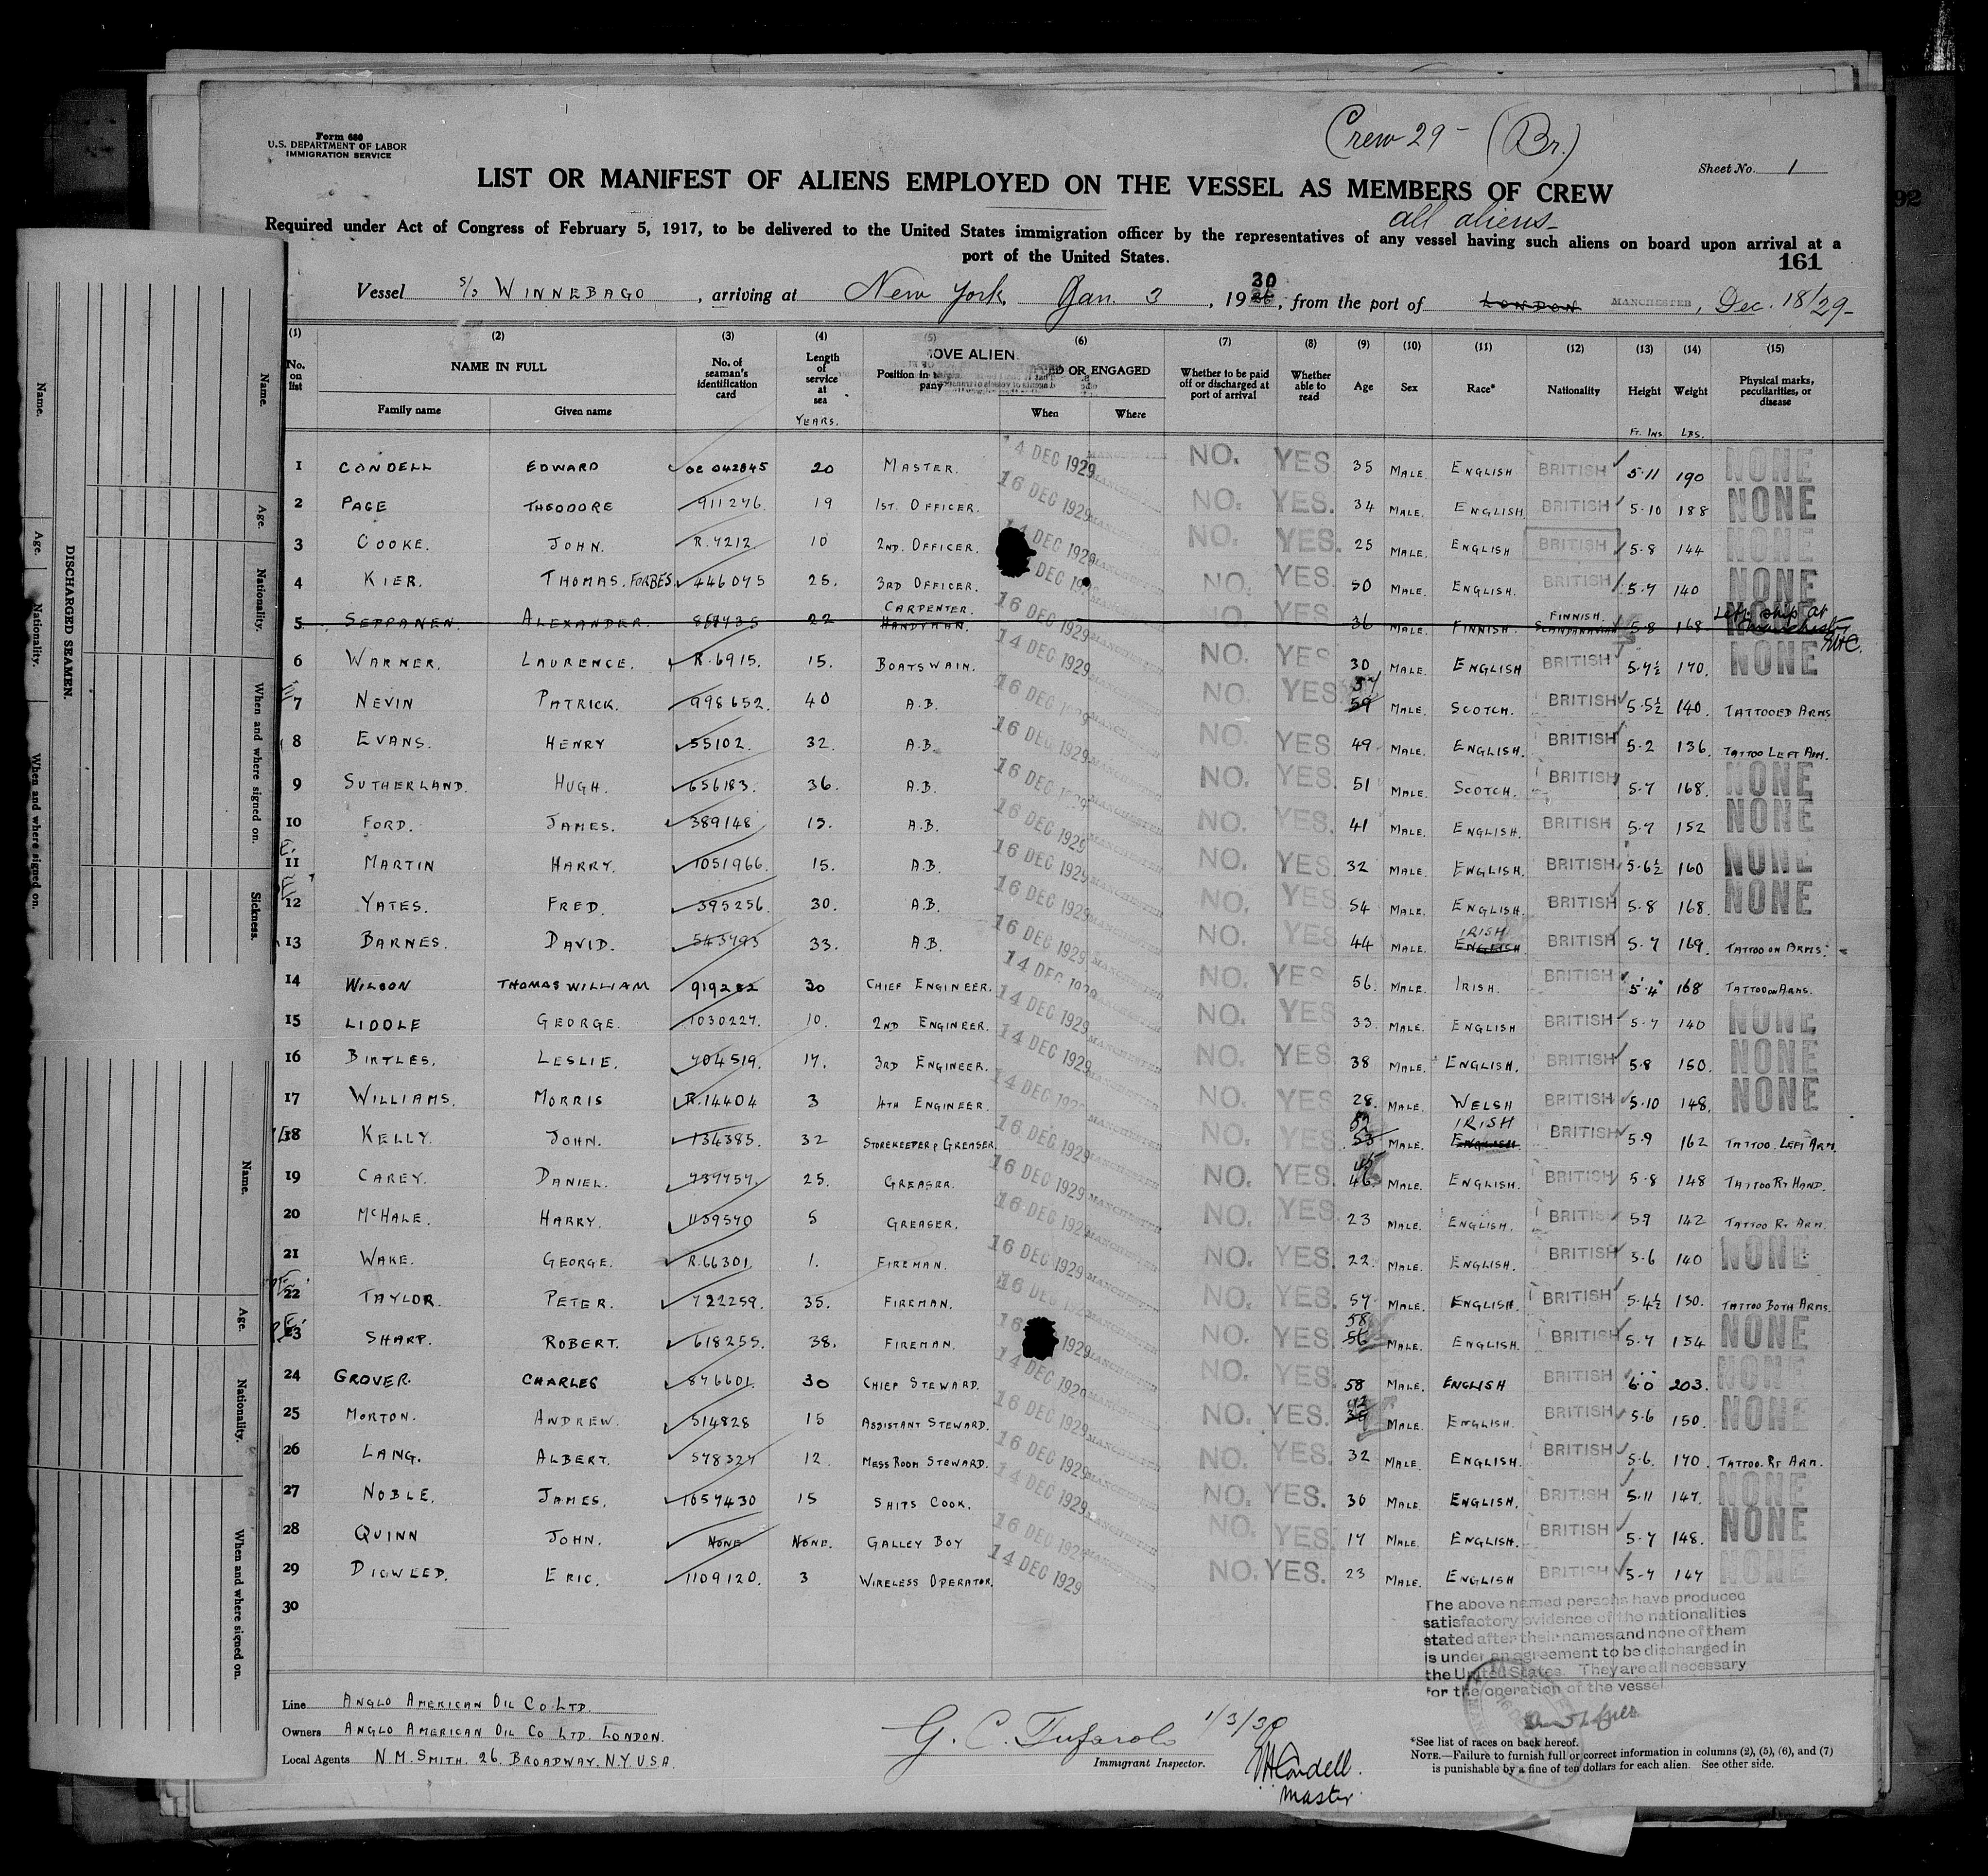 Form 680
U.S. DEPARTMENT OF LABOR
IMMIGRATION SERVICE
Crew 29 - (Br.)
Sheet No. 1
LIST OR MANIFEST OF ALIENS EMPLOYED ON THE VESSEL AS MEMBERS OF CREW
all aliens-
92
Required under Act of Congress of February 5, 1917, to be delivered to the United States immigration officer by the representatives of any vessel having such aliens on board upon arrival at a
port of the United States.
161
Vessel S/S WINNEBAGO, arriving at New York, Jan. 3, 1930, from the port of LONDON MANCHESTER, Dec. 18/29-
(1) (2) (3) (4) (5) (6) (7) (8) (9) (10) (11) (12) (13) (14) (15)
No. on list NAME IN FULL Family name Given name No. of seaman's identification card Length of service at sea YEARS. Position in pany OVE ALIEN ED OR ENGAGED When Where Whether to be paid off or discharged at port of arrival Whether able to read Age Sex Race* Nationality Height Ft. Ins. Weight LBS. Physical marks, peculiarities, or disease
1 CONDELL EDWARD OC 042845 20 MASTER. 14 DEC 1929 MANCHESTER NO. YES 35 MALE. ENGLISH BRITISH 5.11 190 NONE
2 PAGE THEODORE 911276. 19 1ST. OFFICER. 16 DEC 1929 MANCHESTER NO. YES. 34 MALE. ENGLISH. BRITISH 5.10 188 NONE
3 COOKE. JOHN. R.7212. 10 2ND. OFFICER. 14 DEC 1929 MANCHESTER NO. YES. 25 MALE. ENGLISH BRITISH 5.8 144 NONE
4 KIER. THOMAS. FORBES. 446075 25. 3RD OFFICER. DEC 19 MANCHESTER NO. YES. 50 MALE. ENGLISH. BRITISH 5.7 140 NONE
5. SEPPANEN. ALEXANDER. 22 CARPENTER. HANDYMAN. 16 DEC 1929 MANCHESTER NO. YES 36 MALE. FINNISH. FINNISH. SCANDANAVIAN 5.8 168 NONE Left ship at Manchester
6 WARNER. LAURENCE. R.6915. 15. BOATSWAIN. 14 DEC 1929 MANCHESTER NO. YES 30 MALE. ENGLISH BRITISH 5.7½ 170. NONE
7 NEVIN PATRICK. 998652. 40 A.B. 16 DEC 1929 MANCHESTER NO. YES 57 59 MALE. SCOTCH. BRITISH 5.5½ 140. TATTOOED ARMS
8 EVANS. HENRY 55102. 32. A.B. 16 DEC 1929 MANCHESTER NO. YES 49 MALE. ENGLISH. BRITISH 5.2 136. TATTOO LEFT ARM.
9 SUTHERLAND. HUGH. 656183. 36. A.B. 16 DEC 1929 MANCHESTER NO. YES. 51 MALE. SCOTCH. BRITISH 5.7 168. NONE
10 FORD. JAMES. 389148 15. A.B. 16 DEC 1929 MANCHESTER NO. YES. 41 MALE. ENGLISH. BRITISH 5.7 152 NONE
11 MARTIN HARRY. 1051966. 15. A.B. 16 DEC 1929 MANCHESTER NO. YES 32 MALE. ENGLISH. BRITISH 5.6½ 160 NONE
12 YATES. FRED. 395256. 30. A.B. 16 DEC 1929 MANCHESTER NO. YES 54 MALE. ENGLISH. BRITISH 5.8 168. NONE
13 BARNES. DAVID. 543793 33. A.B. 16 DEC 1929 MANCHESTER NO. YES 44 MALE. IRISH ENGLISH BRITISH 5.7 169. TATTOO ON ARMS.
14 WILSON THOMAS WILLIAM 919282 30 CHIEF ENGINEER. 14 DEC 1929 MANCHESTER NO. YES 56. MALE. IRISH. BRITISH 5.4 168 TATTOO ON ARMS.
15 LIDDLE GEORGE. 1030227. 10. 2ND ENGINEER. 14 DEC 1929 MANCHESTER NO. YES 33. MALE. ENGLISH BRITISH 5.7 140 NONE
16 BIRTLES. LESLIE. 704519. 17. 3RD ENGINEER. 14 DEC 1929 MANCHESTER NO. YES 38 MALE. ENGLISH. BRITISH 5.8 150. NONE
17 WILLIAMS. MORRIS R.14404 3 4TH ENGINEER. 14 DEC 1929 MANCHESTER NO. YES 28. MALE. WELSH BRITISH 5.10 148. NONE
18 KELLY. JOHN. 134385. 32 STOREKEEPER & GREASER. 16 DEC 1929 MANCHESTER NO. YES 52 53 MALE. IRISH ENGLISH BRITISH 5.9 162 TATTOO. LEFT ARM.
19 CAREY. DANIEL. 739757. 25. GREASER. 16 DEC 1929 MANCHESTER NO. YES. 45 46. MALE. ENGLISH. BRITISH 5.8 148 TATTOO RT HAND.
20 McHALE. HARRY. 1139570 5 GREASER. 16 DEC 1929 MANCHESTER NO. YES. 23 MALE. ENGLISH. BRITISH 5.9 142 TATTOO RT ARM.
21 WAKE. GEORGE. R.66301. 1. FIREMAN. 16 DEC 1929 MANCHESTER NO. YES. 22. MALE. ENGLISH. BRITISH 5.6 140 NONE
22 TAYLOR. PETER. 722259. 35. FIREMAN. 16 DEC 1929 MANCHESTER NO. YES. 57. MALE. ENGLISH. BRITISH 5.4½ 130. TATTOO BOTH ARMS.
23 SHARP. ROBERT. 618255. 38. FIREMAN. 16 1929 MANCHESTER NO. YES. 58 56 MALE. ENGLISH. BRITISH 5.7 154 NONE
24 GROVER. CHARLES 876601. 30 CHIEF STEWARD. 14 DEC 1929 MANCHESTER NO. YES. 58 MALE. ENGLISH BRITISH 6.0 203. NONE
25 MORTON. ANDREW. 514828 15 ASSISTANT STEWARD. 16 DEC 1929 MANCHESTER NO. YES. 42 39 MALE. ENGLISH. BRITISH 5.6 150. NONE
26 LANG. ALBERT. 578327 12. MESS ROOM STEWARD. 16 DEC 1929 MANCHESTER NO. YES. 32 MALE. ENGLISH. BRITISH 5.6. 170. TATTOO. RT ARM.
27 NOBLE. JAMES. 1057430 15 SHIPS COOK. 14 DEC 1929 MANCHESTER NO. YES. 30 MALE ENGLISH. BRITISH 5.11 147. NONE
28 QUINN JOHN. NONE NONE. GALLEY BOY 16 DEC 1929 MANCHESTER NO. YES. 17 MALE. ENGLISH. BRITISH 5.7 148. NONE
29 DIGWEED. ERIC. 1109120. 3 WIRELESS OPERATOR. 14 DEC 1929 NO. YES. 23 MALE. ENGLISH BRITISH 5.7 147 NONE
30
The above named persons have produced
satisfactory evidence of the nationalities
stated after their names and none of them
is under an agreement to be discharged in
the United States. They are all necessary
for the operation of the vessel
Line ANGLO AMERICAN OIL CO. LTD.
Owners ANGLO AMERICAN OIL CO LTD. LONDON.
Local Agents N.M. SMITH. 26. BROADWAY. N.Y. U.S.A.
G. C. Tufarolo 1/3/30
Immigrant Inspector.
Condell.
Master.
*See list of races on back hereof.
NOTE.—Failure to furnish full or correct information in columns (2), (5), (6), and (7)
is punishable by a fine of ten dollars for each alien. See other side.
DISCHARGED SEAMEN.
Name. Age. Nationality. When and where signed on. Sickness.
Name. Age. Nationality. When and where signed on.
Name. Age. Nationality. When and where signed on.